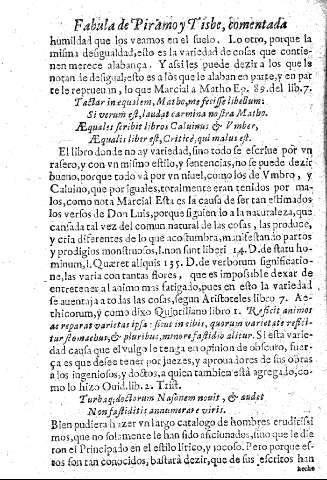 Fabula de Piramo y Tisbe, comentada
humildad que los veamos en el suelo. Lo otro, porque la
misma desigualdad, esto es la variedad de cosas que contie-
nen merece alabança. Y assi les puede dezir a los que le
notan de desigual, esto es a los que le alaban en parte, y en par
te le reprueuan, lo que Marcial a Matho Ep. 89. del lib. 7.
Iactat inæqualem, Matho, me fecisse libellum:
Si verum est, laudat carmina nostra Matho.
Æquales scribit libros Caluinus & Vmber,
Æqualis liber est, Critice, qui malus est.
El libro donde no ay variedad, sino todo se escriue por vn
rasero, y con vn mismo estilo, y sentencias, no se puede dezir
bueno, porque todo và por vn niuel, como los de Vmbro, y
Caluino, que por iguales, totalmente eran tenidos por ma-
los, como nota Marcial Esta es la causa de ser tan estimados
los versos de Don Luis, porque siguiendo a la naturaleza, que
cansada tal vez del comun natural de las cosas, las produce,
y cria diferentes de lo que acostumbra, manifestando partos
y prodigios monstruosos, l. non sunt liberi 14. D. de statu ho-
minum, l. Quæret aliquis 135. D. de verborum significatio-
ne, las varia con tantas flores, que es impossible dexar de
entretener al animo mas fatigado, pues en esto la variedad
se auentaja a todas las cosas, segun Aristoteles libro 7. Ae-
thicorum, y como dixo Quintiliano libro 1. Reficit animos
ac reparat varietas ipsa: sicut in cibis, quorum varietate refici-
tur stomachus, & pluribus, minore fastidio alitur. Si esta varie-
dad causa que el vulgo le tenga en opinion de obscuro, fuer-
ça es que dessee tener por juezes, y aprouadores de sus obras
a los ingeniosos, y doctos, a quien tambien està agregado, co-
mo lo hizo Ouid. lib. 2. Trist.
Turbaq; doctorum Nasonem nouit, & audet
Non fastiditis annumerare viris.
Bien pudiera hazer vn largo catalogo de hombres eruditissi
mos, que no solamente le han sido aficionados, sino que le die
ron el Principado en el estilo lirico, y jocoso. Pero porque es-
tos son tan conocidos, bastarà dezir, que de sus escritos han
hecho